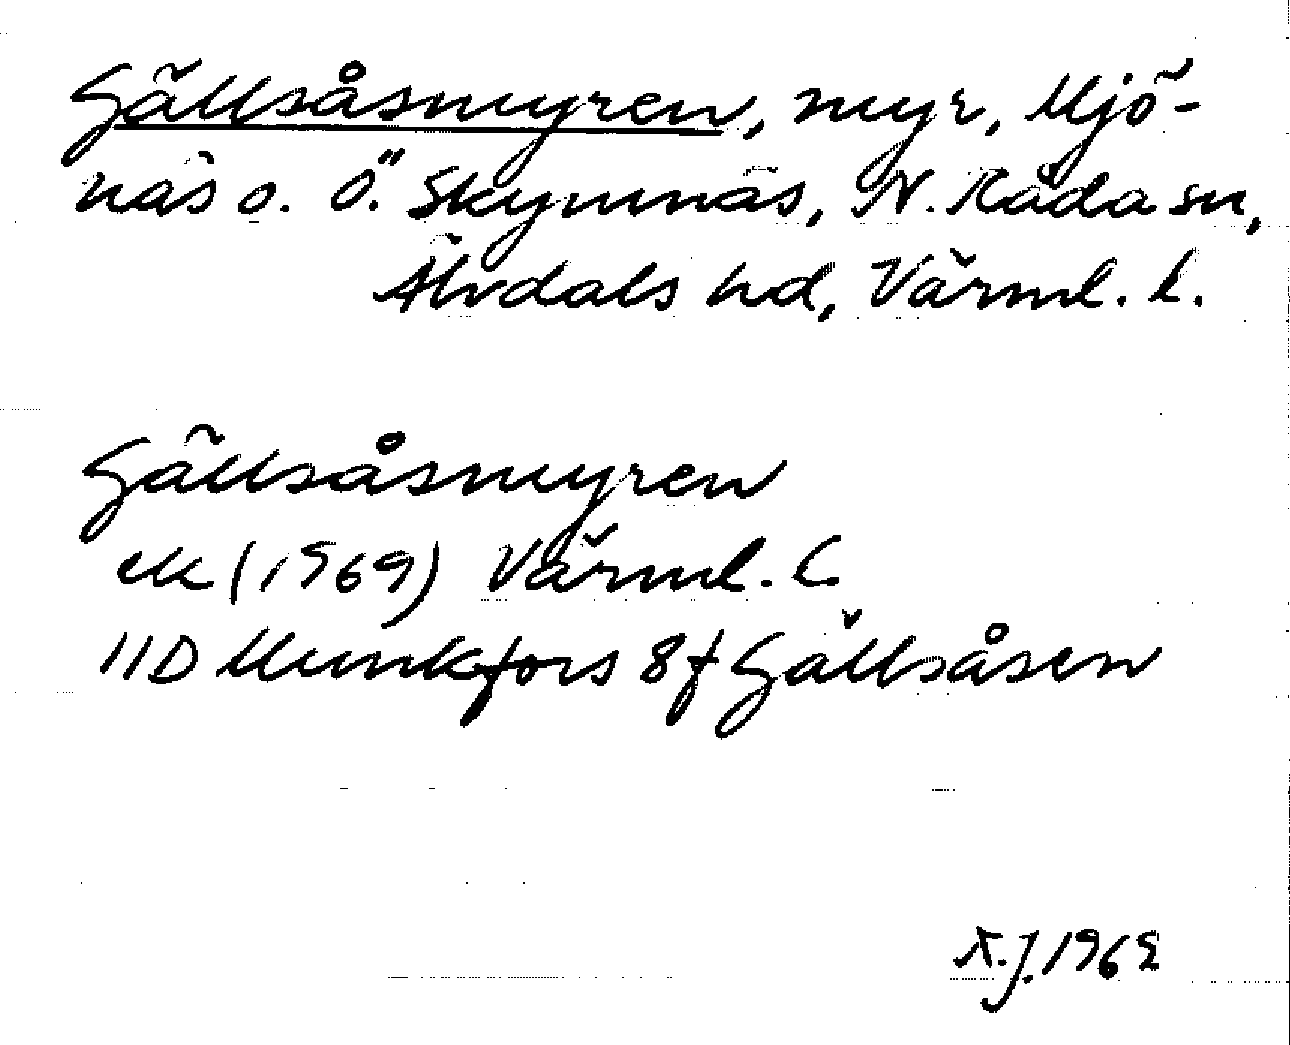 Gällsåsmyren, myr, Mjö-
näs o. Ö. Skymnäs, N. Råda sn,
Älvdals hd, Värml. l.
Gällsåsmyren
ek (1969) Värml. l.
11D Munkfors 8f Gällsåsen
A.J. 1962